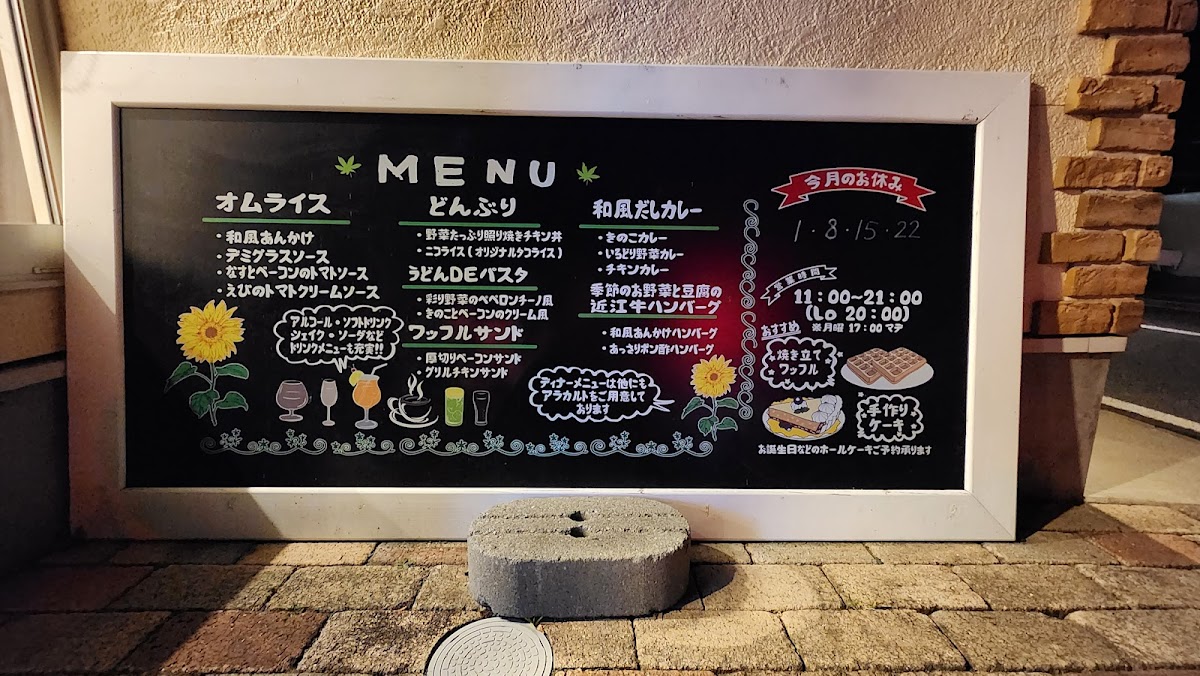 MENU
オムライス
・和風あんかけ
・デミグラスソース
・なすとベーコンのトマトソース
・えびのトマトクリームソース
アルコール・ソフトドリンク
シェイク・ソーダなど
ドリンクメニューも充実!!
どんぶり
・野菜たっぷり照り焼きチキン丼
・ニコライス(オリジナルタコライス)
うどんDEパスタ
・彩り野菜のペペロンチーノ風
・きのことベーコンのクリーム風
ワッフルサンド
・厚切りベーコンサンド
・グリルチキンサンド
和風だしカレー
・きのこカレー
・いろどり野菜カレー
・チキンカレー
季節のお野菜と豆腐の
近江牛ハンバーグ
・和風あんかけハンバーグ
・あっさりポン酢ハンバーグ
ディナーメニューは他にも
アラカルトをご用意して
おります
今月のお休み
1・8・15・22
営業時間
11:00~21:00
(Lo 20:00)
※月曜 17:00マデ
おすすめ
焼き立て
ワッフル
手作り
ケーキ
お誕生日などのホールケーキご予約承ります